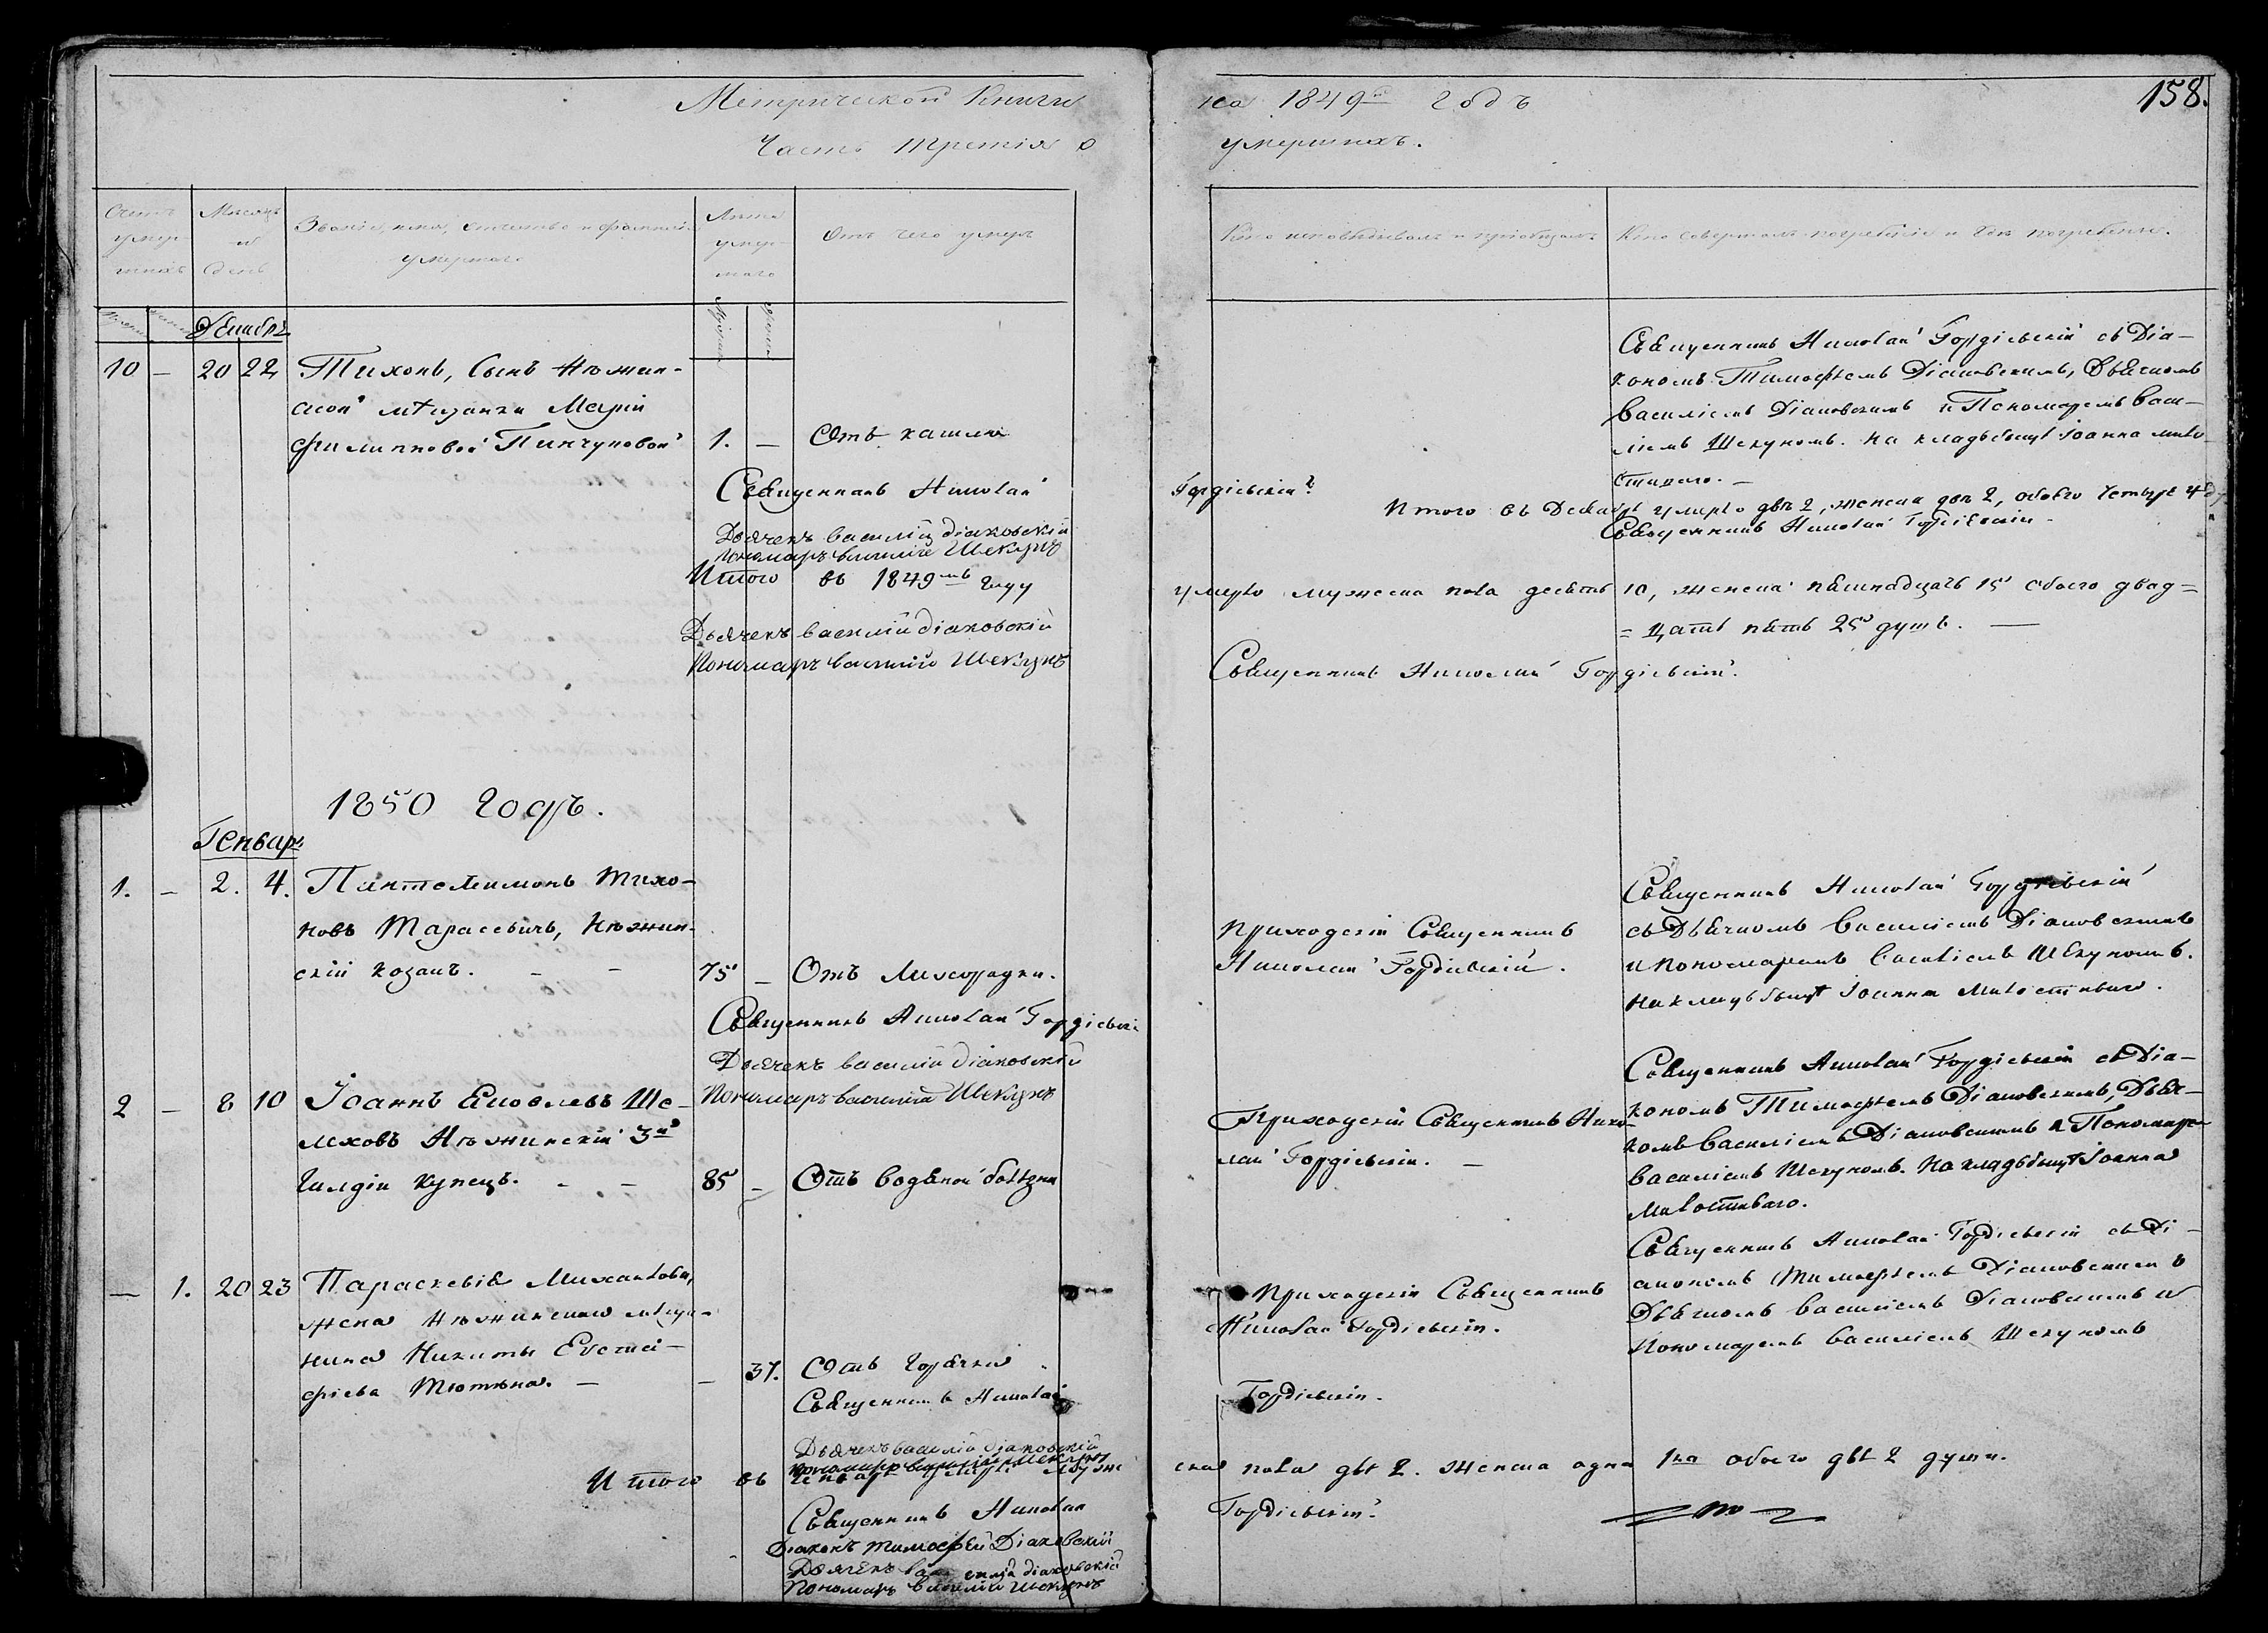 Метрической Книги на 1849й годъ
158.
Часть третія о умершихъ.
Счетъ умершихъ
Мѣсяцъ и день
Званіе, имя, отчество и фамилія умершаго
Лѣта умершаго
Отъ чего умеръ
Кто исповѣдывалъ и пріобщалъ
Кто совершалъ погребеніе и гдѣ погребены.
Декабрь
10 — 20 22 Тихонъ, Сынъ Нѣжин-
ской мѣщанки Маріи
Филипповой Пинчуковой 1. — Отъ кашля
Священникъ Николай Гордіевскій с Діа-
кономъ Тимофѣемъ Діаковскимъ, Дьячкомъ
Василіемъ Діаковскимъ и Пономаремъ Васи-
ліемъ Шекуномъ. на кладбищѣ Іоанна Мило-
стиваго. —
Священникъ Николай Гордіевскій
Дьячекъ Василій Діаковскій
Пономарь Василій Шекунъ
Итого въ Декабрѣ умерло два 2, женска два 2, обоего четыре 4
Священникъ Николай Гордіевскій
Итого въ 1849мъ году умерло мужеска пола десять 10, женска пятнадцать 15 обоего двад=
=цать пять 25 душъ. —
Дьячекъ Василій Діаковскій
Пономарь Василій Шекунъ
Священникъ Николай Гордіевскій.
1850 годъ.
Генварь
1. — 2. 4. Пантелеимонъ Тихо-
новъ Тарасевичъ, Нѣжин-
скій козакъ. — — 75 — Отъ Лихорадки.
Приходскій Священникъ
Николай Гордіевскій.
Священникъ Николай Гордіевскій
съ Дьячкомъ Василіемъ Діаковскимъ
и пономаремъ Василіемъ Шекуномъ.
на кладбищѣ Іоанна Милостиваго.
Священникъ Николай Гордіевскі
Дьячекъ Василій Діаковскій
Пономарь Василій Шекунъ
2 — 8 10 Іоаннъ Яковлевъ Ше-
леховъ Нѣжинскій 3й
Гилдіи купецъ. — — 85 — Отъ водяной болѣзни
Приходскій Священникъ Нико-
лай Гордіевскій. —
Священникъ Николай Гордіевскій съ Діа-
кономъ Тимофѣемъ Діаковскимъ, Дьяч-
комъ Василіемъ Діаковскимъ и Пономаре
Василіемъ Шекуномъ. На кладбищѣ Іоанна
Милостиваго.
— 1. 20 23 Параскевія Михайлова,
жена Нѣжинскаго мѣща-
нина Никиты Евстаі-
фіева — — 37. Отъ Горячки
Приходскій Священникъ
Николай Гордіевскій.
Священникъ Николай Гордіевскій съ Ді-
акономъ Тимофѣемъ Діаковскимъ
Дьячкомъ Василіемъ Діаковскимъ и
Пономаремъ Василіемъ Шекуномъ
Священникъ Николай Гордіевскій.
Дьячекъ Василій Діаковскій
Пономарь Василій Шекунъ
Итого въ Генварѣ умерло муже
ска пола двѣ 2. женска одна 1на обоего двѣ 2 души.
Священникъ Николай Гордіевскій
Діаконъ Тимофей Діаковскій
Дьячекъ Василій Діаковскій
Пономарь Василій Шекунъ